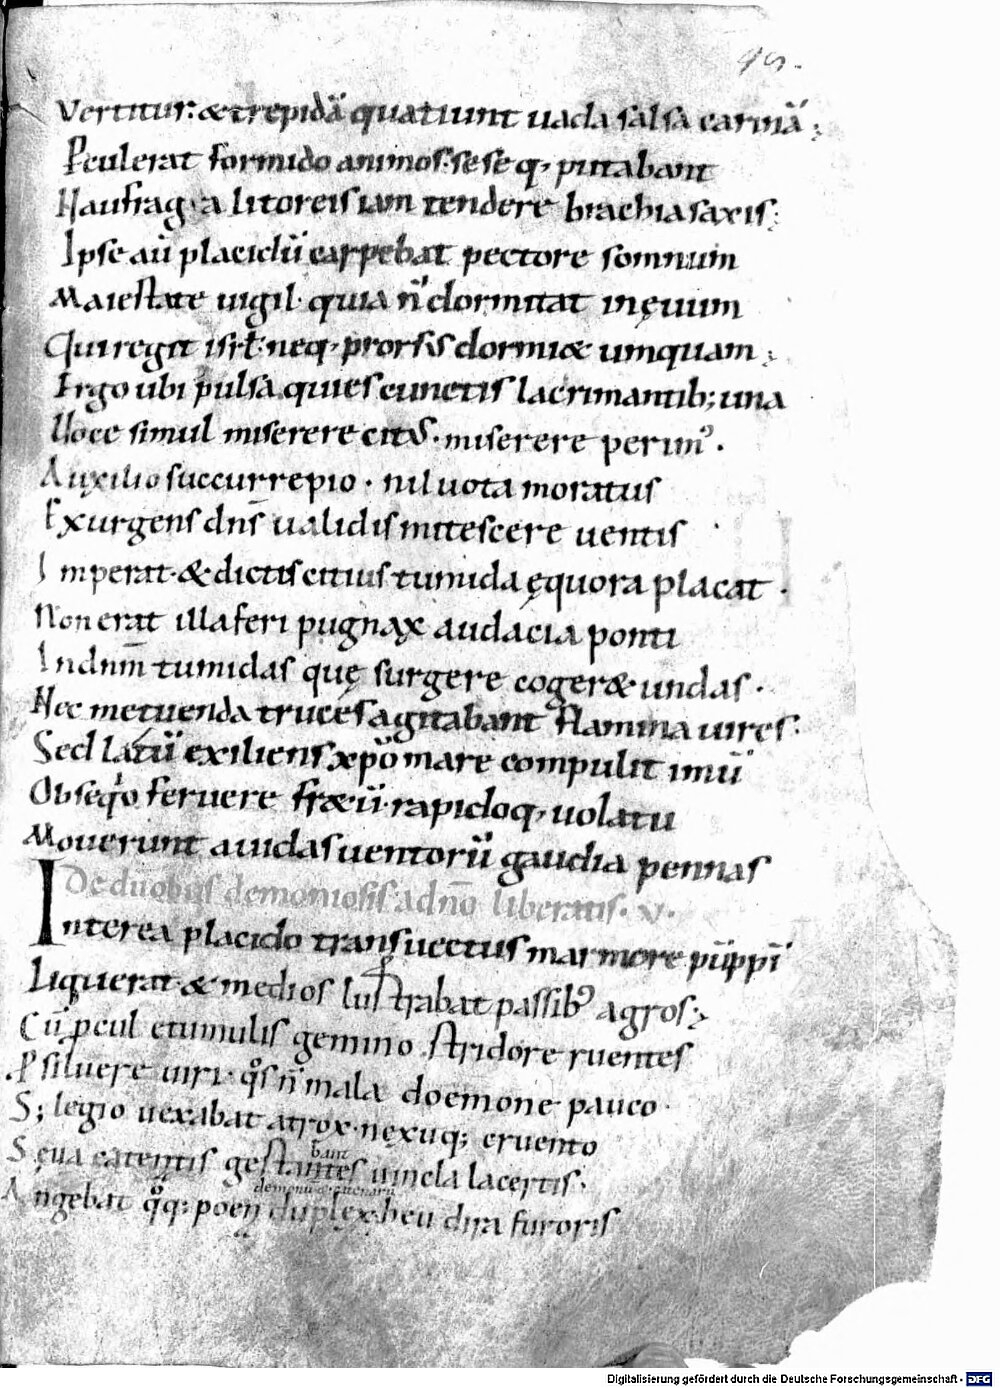 45.
Vertitur: & trepidā quatiunt uada salsa carinā;
Perculerat formido animos. sese q; putabant
Naufrag; a litoreis iam tendere brachia saxis;
Ipse aū placidū carpebat pectore somnum
Maiestate uigil. quia n̄ dormitat inęuum
Qui regit isrł. neq; prorsus dormi& umquam;
Ergo ubi pulsa quies cunctis lacrimantib; una
Uoce simul miserere citus. miserere perim᾽.
Auxilio succurre pio. nil uota moratus
Exurgens dn̄s ualidis mitescere uentis
Imperat. & dictis citius tumida ęquora placat.
Non erat illa feri pugnax audacia ponti
In dnm̄ tumidas quę surgere coger& undas.
Nec metuenda truces agitabant flamina uires.
Sed lætū exiliens xp̄o mare compulit imū
Obseq̊o feruere fr&ū. rapidoq; uolatu
Mouerunt auidas uentorū gaudia pennas
De duobus demoniosis a dn̄o liberatis. v.
Interea placido transuectus marmore pūppī
Liquerat. & medios lustrabat passib᾽ agros;
Cū pcul e tumulis gemino stridore ruentes
Psiluere uiri. q̊s n̄ mala doemone pauco.
S; legio uexabat atrox. nexuq; cruento
Sęua catentis gestantes uincla lacertis.
bant
Angebat q̊q; poen duplex. heu dira furoris
demonū & catenarū
Digitalisierung gefördert durch die Deutsche Forschungsgemeinschaft - DFG